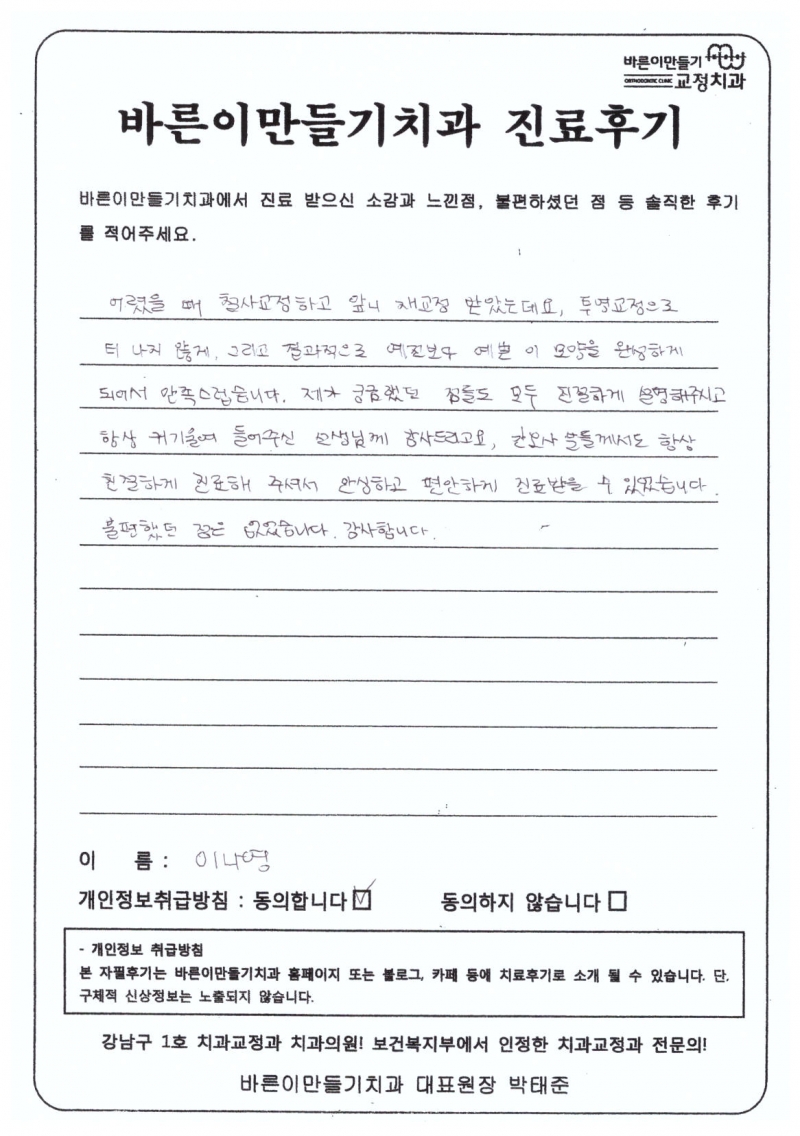 바른이만들기
ORTHODONTIC CLINIC 교정치과
바른이만들기치과 진료후기
바른이만들기치과에서 진료 받으신 소감과 느낀점, 불편하셨던 점 등 솔직한 후기
를 적어주세요.
어렸을 때 철사교정하고 앞니 재교정 받았는데요, 투명교정으로
티 나지 않게, 그리고 결과적으로 예전보다 예쁜 이 모양을 완성하게
되어서 만족스럽습니다. 제가 궁금했던 점들도 모두 친절하게 설명해주시고
항상 귀기울여 들어주신 선생님께 감사드리고요, 간호사 분들께서도 항상
친절하게 진료해 주셔서 안심하고 편안하게 진료받을 수 있었습니다.
불편했던 점은 없었습니다. 감사합니다.
이 름 : 이나영
개인정보취급방침 : 동의합니다 ☑ 동의하지 않습니다 ☐
- 개인정보 취급방침
본 자필후기는 바른이만들기치과 홈페이지 또는 블로그, 카페 등에 치료후기로 소개 될 수 있습니다. 단,
구체적 신상정보는 노출되지 않습니다.
강남구 1호 치과교정과 치과의원! 보건복지부에서 인정한 치과교정과 전문의!
바른이만들기치과 대표원장 박태준